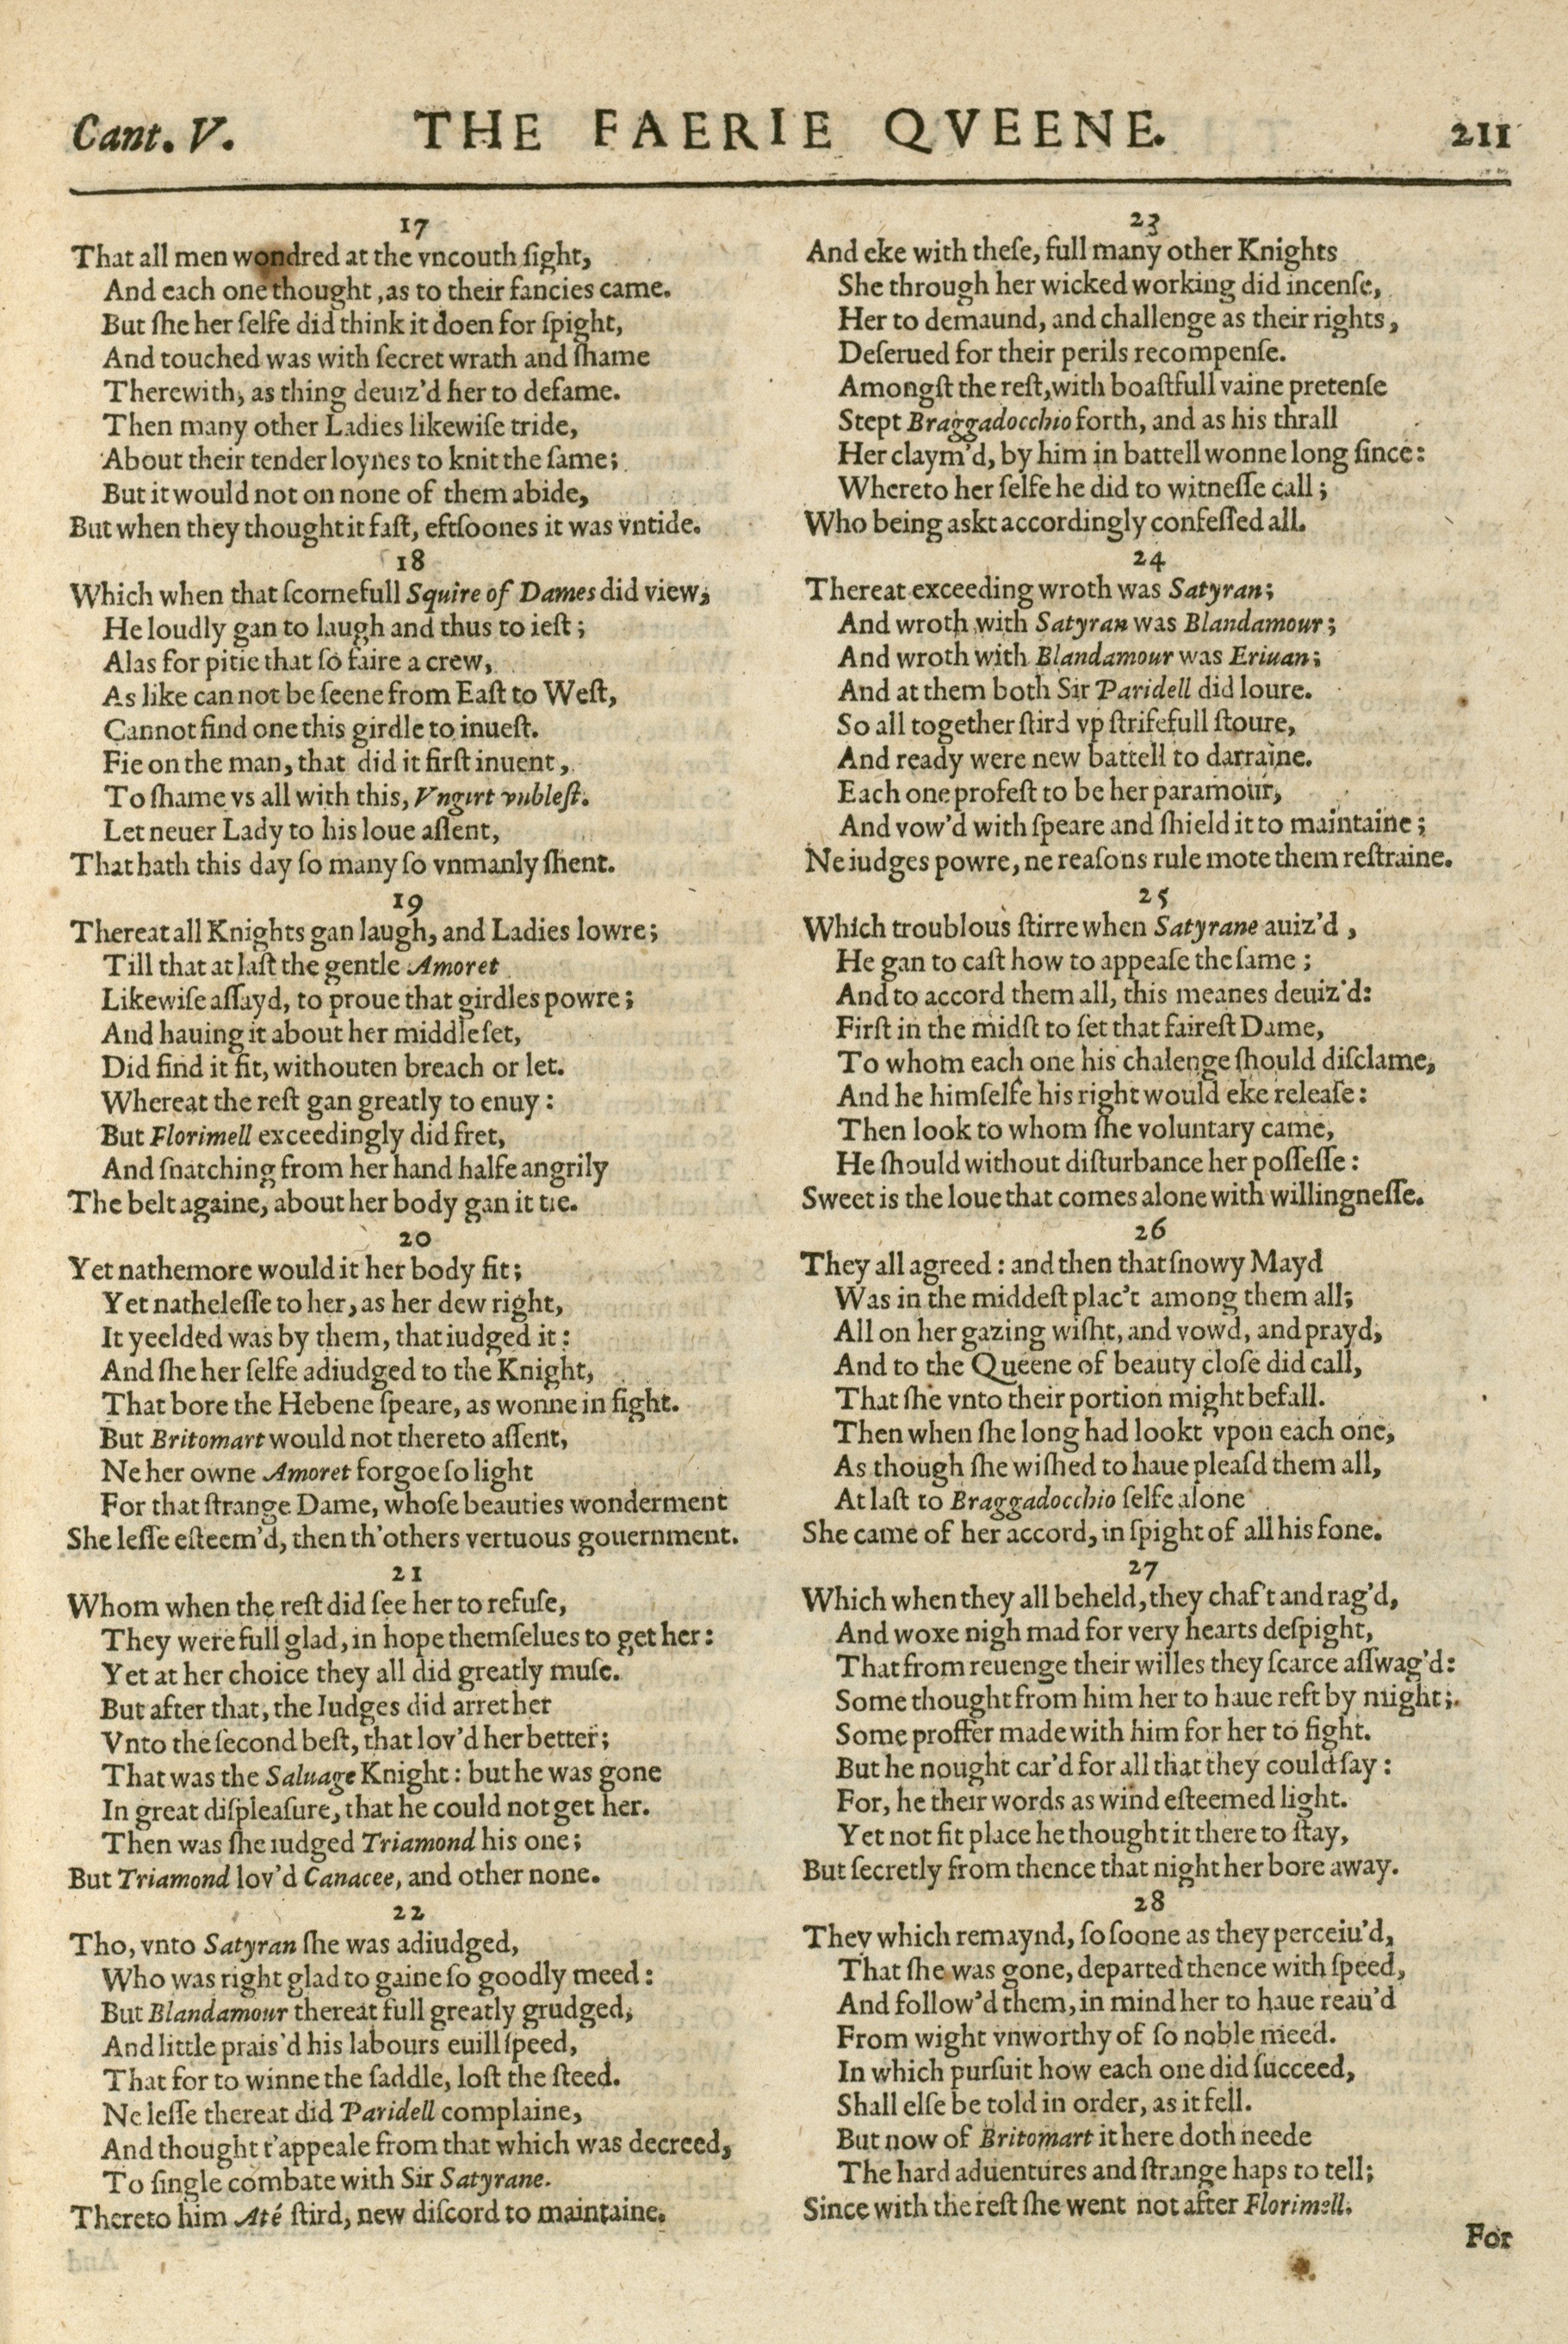 Cant. V. THE FAERIE QVEENE. 211
17
That all men wondred at the vncouth ſight,
And each one thought, as to their fancies came.
But ſhe her ſelfe did think it doen for ſpight,
And touched was with ſecret wrath and ſhame
Therewith, as thing deuiz'd her to defame.
Then many other Ladies likewiſe tride,
About their tender loynes to knit the ſame;
But it would not on none of them abide,
But when they thought it faſt, eftſoones it was vntide.
18
Which when that ſcornefull Squire of Dames did view,
He loudly gan to laugh and thus to ieſt;
Alas for pitie that ſo faire a crew,
As like can not be ſeene from Eaſt to Weſt,
Cannot find one this girdle to inueſt.
Fie on the man, that did it firſt inuent,
To ſhame vs all with this, Vngirt vnbleſt.
Let neuer Lady to his loue aſſent,
That hath this day ſo many ſo vnmanly ſhent.
19
Thereat all Knights gan laugh, and Ladies lowre;
Till that at laſt the gentle Amoret
Likewiſe aſſayd, to proue that girdles powre;
And hauing it about her middle ſet,
Did find it fit, withouten breach or let.
Whereat the reſt gan greatly to enuy:
But Florimell exceedingly did fret,
And ſnatching from her hand halfe angrily
The belt againe, about her body gan it tie.
20
Yet nathemore would it her body fit;
Yet natheleſſe to her, as her dew right,
It yeelded was by them, that iudged it:
And ſhe her ſelfe adiudged to the Knight,
That bore the Hebene ſpeare, as wonne in fight.
But Britomart would not thereto aſſent,
Ne her owne Amoret forgoe ſo light
For that ſtrange Dame, whoſe beauties wonderment
She leſſe eſteem'd, then th'others vertuous gouernment.
21
Whom when the reſt did ſee her to refuſe,
They were full glad, in hope themſelues to get her:
Yet at her choice they all did greatly muſe.
But after that, the Iudges did arret her
Vnto the ſecond beſt, that lov'd her better;
That was the Saluage Knight: but he was gone
In great diſpleaſure, that he could not get her.
Then was ſhe iudged Triamond his one;
But Triamond lov'd Canacee, and other none.
22
Tho, vnto Satyran ſhe was adiudged,
Who was right glad to gaine ſo goodly meed:
But Blandamour thereat full greatly grudged,
And little prais'd his labours euill ſpeed,
That for to winne the ſaddle, loſt the ſteed.
Ne leſſe thereat did Paridell complaine,
And thought t'appeale from that which was decreed,
To ſingle combate with Sir Satyrane.
Thereto him Até ſtird, new diſcord to maintaine.
23
And eke with theſe, full many other Knights
She through her wicked working did incenſe,
Her to demaund, and challenge as their rights,
Deſerued for their perils recompenſe.
Amongſt the reſt, with boaſtfull vaine pretenſe
Stept Braggadocchio forth, and as his thrall
Her claym'd, by him in battell wonne long ſince:
Whereto her ſelfe he did to witneſſe call;
Who being askt accordingly confeſſed all.
24
Thereat exceeding wroth was Satyran;
And wroth with Satyran was Blandamour;
And wroth with Blandamour was Eriuan;
And at them both Sir Paridell did loure.
So all together ſtird vp ſtrifefull ſtoure,
And ready were new battell to darraine.
Each one profeſt to be her paramour,
And vow'd with ſpeare and ſhield it to maintaine;
Ne iudges powre, ne reaſons rule mote them reſtraine.
25
Which troublous ſtirre when Satyrane auiz'd,
He gan to caſt how to appeaſe the ſame;
And to accord them all, this meanes deuiz'd:
Firſt in the midſt to ſet that faireſt Dame,
To whom each one his chalenge ſhould diſclame,
And he himſelfe his right would eke releaſe:
Then look to whom ſhe voluntary came,
He ſhould without diſturbance her poſſeſſe:
Sweet is the loue that comes alone with willingneſſe.
26
They all agreed: and then that ſnowy Mayd
Was in the middeſt plac't among them all;
All on her gazing wiſht, and vowd, and prayd,
And to the Queene of beauty cloſe did call,
That ſhe vnto their portion might befall.
Then when ſhe long had lookt vpon each one,
As though ſhe wiſhed to haue pleaſd them all,
At laſt to Braggadocchio ſelfe alone
She came of her accord, in ſpight of all his fone.
27
Which when they all beheld, they chaf't and rag'd,
And woxe nigh mad for very hearts deſpight,
That from reuenge their willes they ſcarce aſſwag'd:
Some thought from him her to haue reft by might;
Some proffer made with him for her to fight.
But he nought car'd for all that they could ſay:
For, he their words as wind eſteemed light.
Yet not fit place he thought it there to ſtay,
But ſecretly from thence that night her bore away.
28
They which remaynd, ſo ſoone as they perceiu'd,
That ſhe was gone, departed thence with ſpeed,
And follow'd them, in mind her to haue reau'd
From wight vnworthy of ſo noble meed.
In which purſuit how each one did ſucceed,
Shall elſe be told in order, as it fell.
But now of Britomart it here doth neede
The hard aduentures and ſtrange haps to tell;
Since with the reſt ſhe went not after Florimell.
For